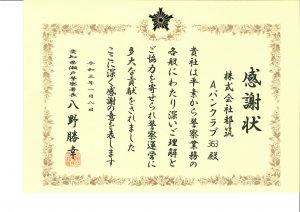 感謝状
株式会社部筑
Aバンクラブ363殿
貴社は平素から警察業務の
各般にわたり深いご理解と
ご協力を寄せられ警察運営に
多大な貢献をされました
ここに深く感謝の意を表します
令和三年一月八日
愛知県瀬戸警察署長
八野勝幸